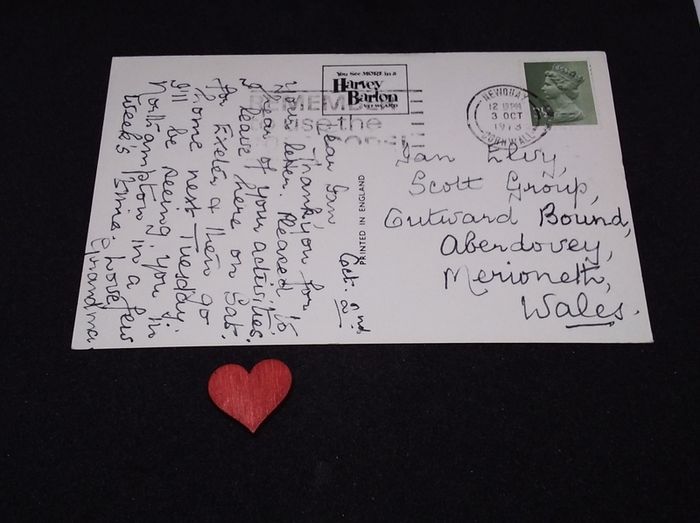 You See MORE in a
Harvey
Barton
POSTCARD
REMEMBER
to use the
NEWQUAY
3 OCT
1973
CORNWALL
Oct. 2nd.
Dear Ian
Thank you for
Your letter. Pleased to
hear of your activities.
I leave here on Sat.
for Exeter & then go
home next Tuesday.
I'll be seeing you in
Northampton in a few
week's time. Love
Grandma.
PRINTED IN ENGLAND
Ian Elvy,
Scott Group,
Outward Bound,
Aberdovey,
Merioneth,
Wales.